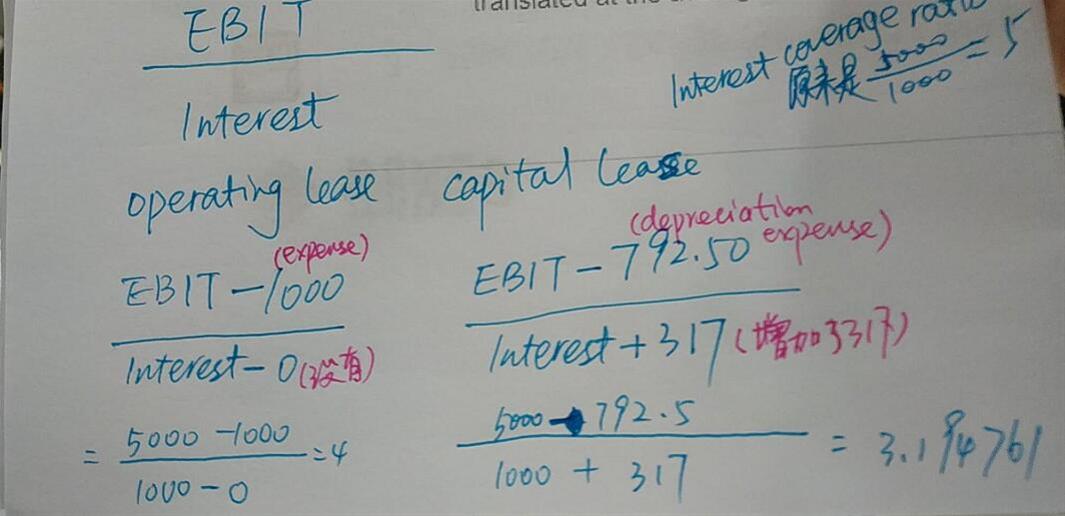 translated at the
EBIT
Interest
Interest coverage ratio
原来是 5000/1000 = 5
operating lease capital lease
(expense) (depreciation expense)
EBIT - 1000 EBIT - 792.50
Interest - 0 (没有) Interest + 317 (增加了317)
= 5000 - 1000 / 1000 - 0 = 4 5000 - 792.5 / 1000 + 317 = 3.194761